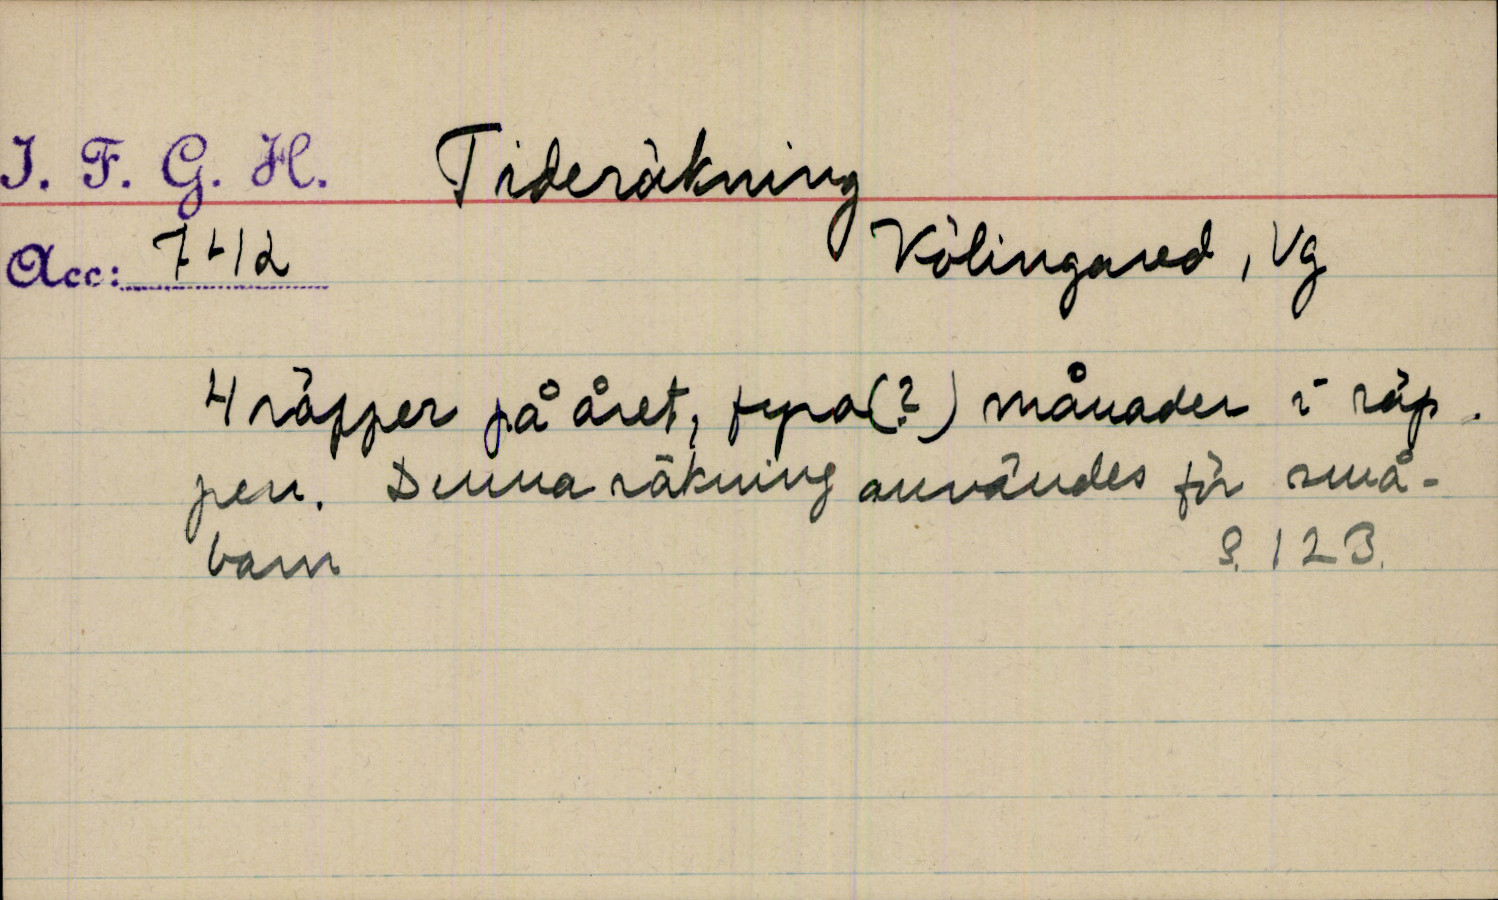 I. F. G. H. Tideräkning
Acc: 7412 Kölingared, Vg
4 räpper på året, fyra(?) månader i räp-
pen. Denna räkning användes för små-
barn S. 123.